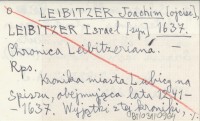 LEIBITZER Joachim (ojciec),
LEIBITZER Israel (syn) 1637.
Chronica Leibitzeriana. —
Rps.
Kronika miasta Lubicy na
Spiszu, obejmująca lata 1241—
—1637. Wyjątki z tej kroniki